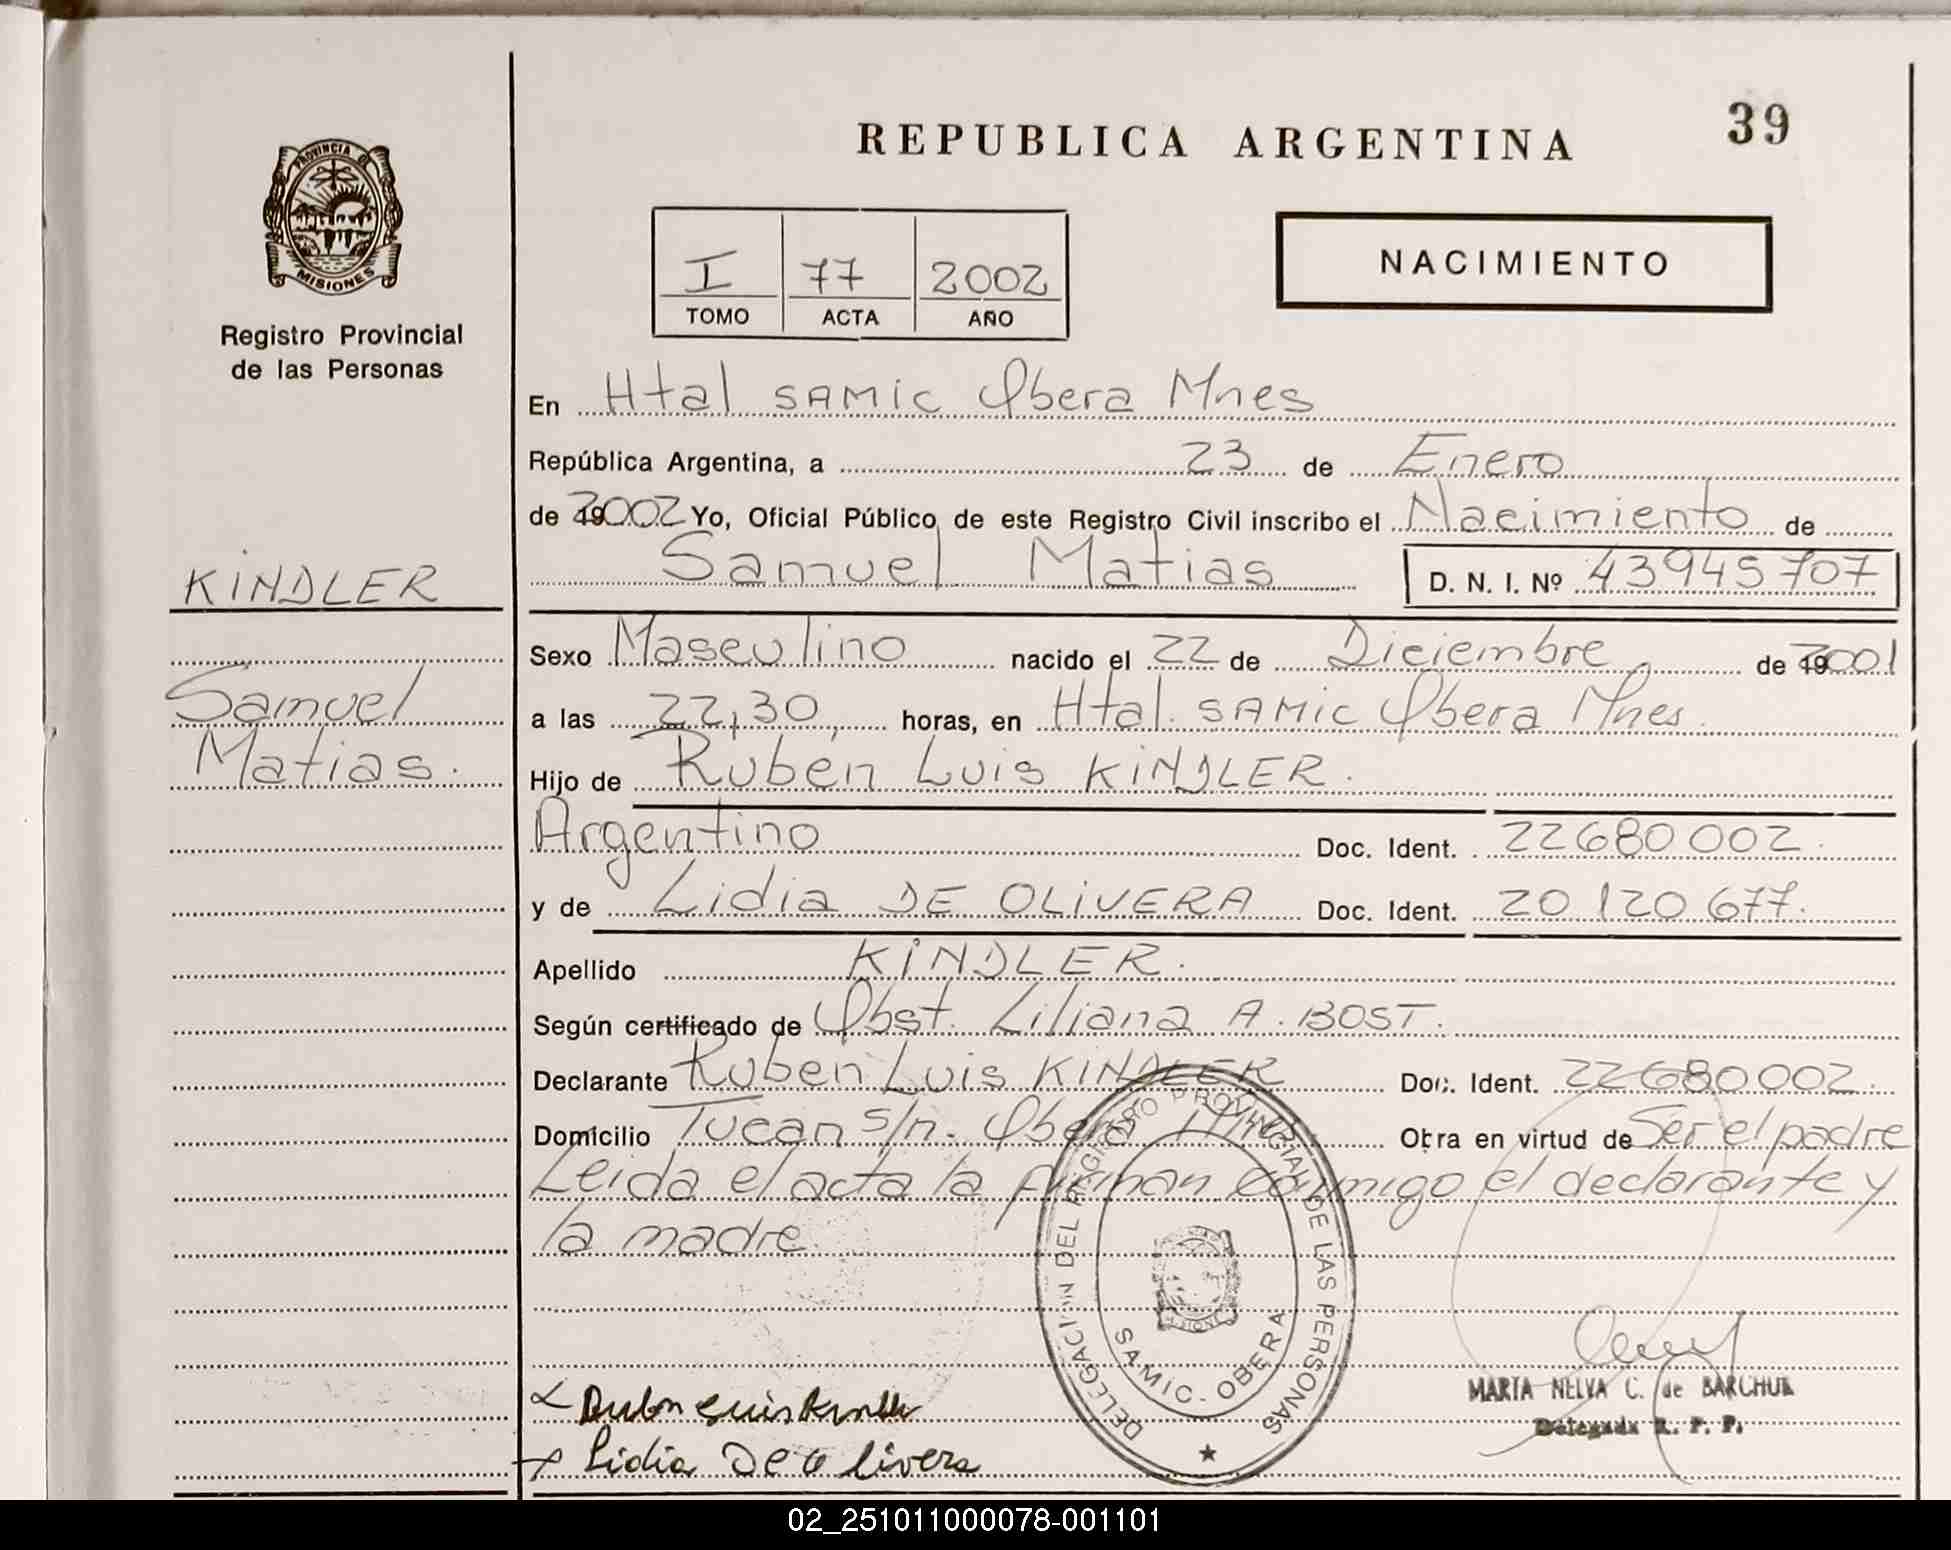 39
REPUBLICA ARGENTINA
PROVINCIA DE
MISIONES
Registro Provincial
de las Personas
I 77 2002
TOMO ACTA AÑO
NACIMIENTO
En Htal SAMIC Obera Mnes
República Argentina, a 23 de Enero
de 2002 Yo, Oficial Público de este Registro Civil inscribo el Nacimiento de
Samuel Matias D. N. I. Nº 43945707
KINDLER
Samuel
Matias.
Sexo Masculino nacido el 22 de Diciembre de 2001
a las 22,30 horas, en Htal. SAMIC Obera Mnes.
Hijo de Ruben Luis KINDLER.
Argentino Doc. Ident. 22680002.
y de Lidia DE OLIVERA Doc. Ident. 20120677.
Apellido KINDLER.
Según certificado de Obst. Liliana A. BOST.
Declarante Ruben Luis KINDLER Doc. Ident. 22680002.
Domicilio Tucan s/n. Obera Mnes Obra en virtud de Ser el padre
Leida el acta la firman conmigo el declarante y
la madre.
DELEGACION DEL REGISTRO PROVINCIAL DE LAS PERSONAS
SAMIC - OBERA
MARTA NELVA C. de BARCHUK
Delegada R. P. P.
Lidia De Olivera
02_251011000078-001101